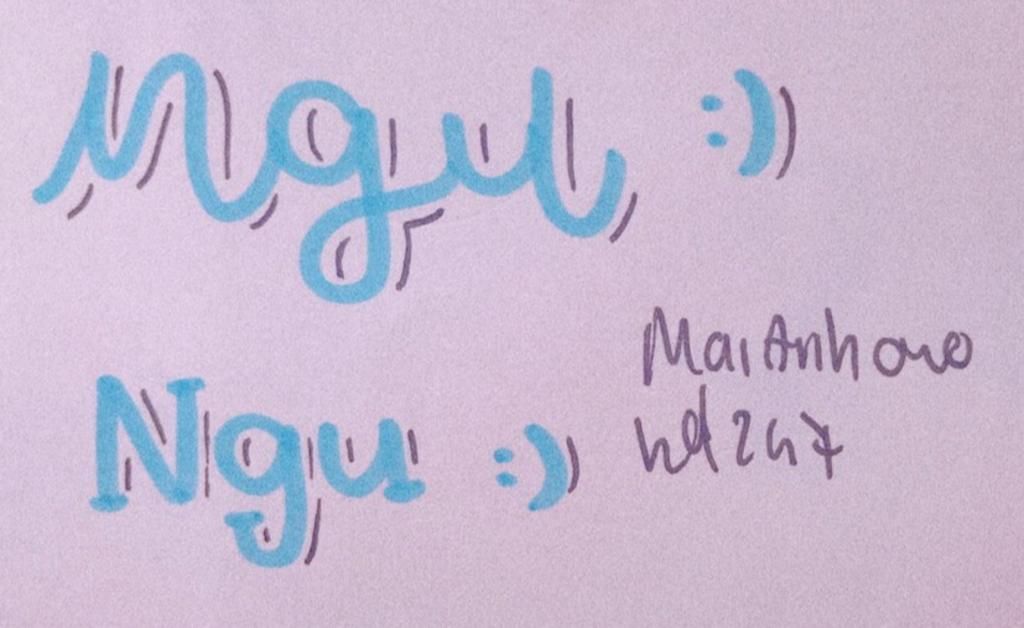 Ngu :))
Ngu :))
MaiAnhowo
hd247